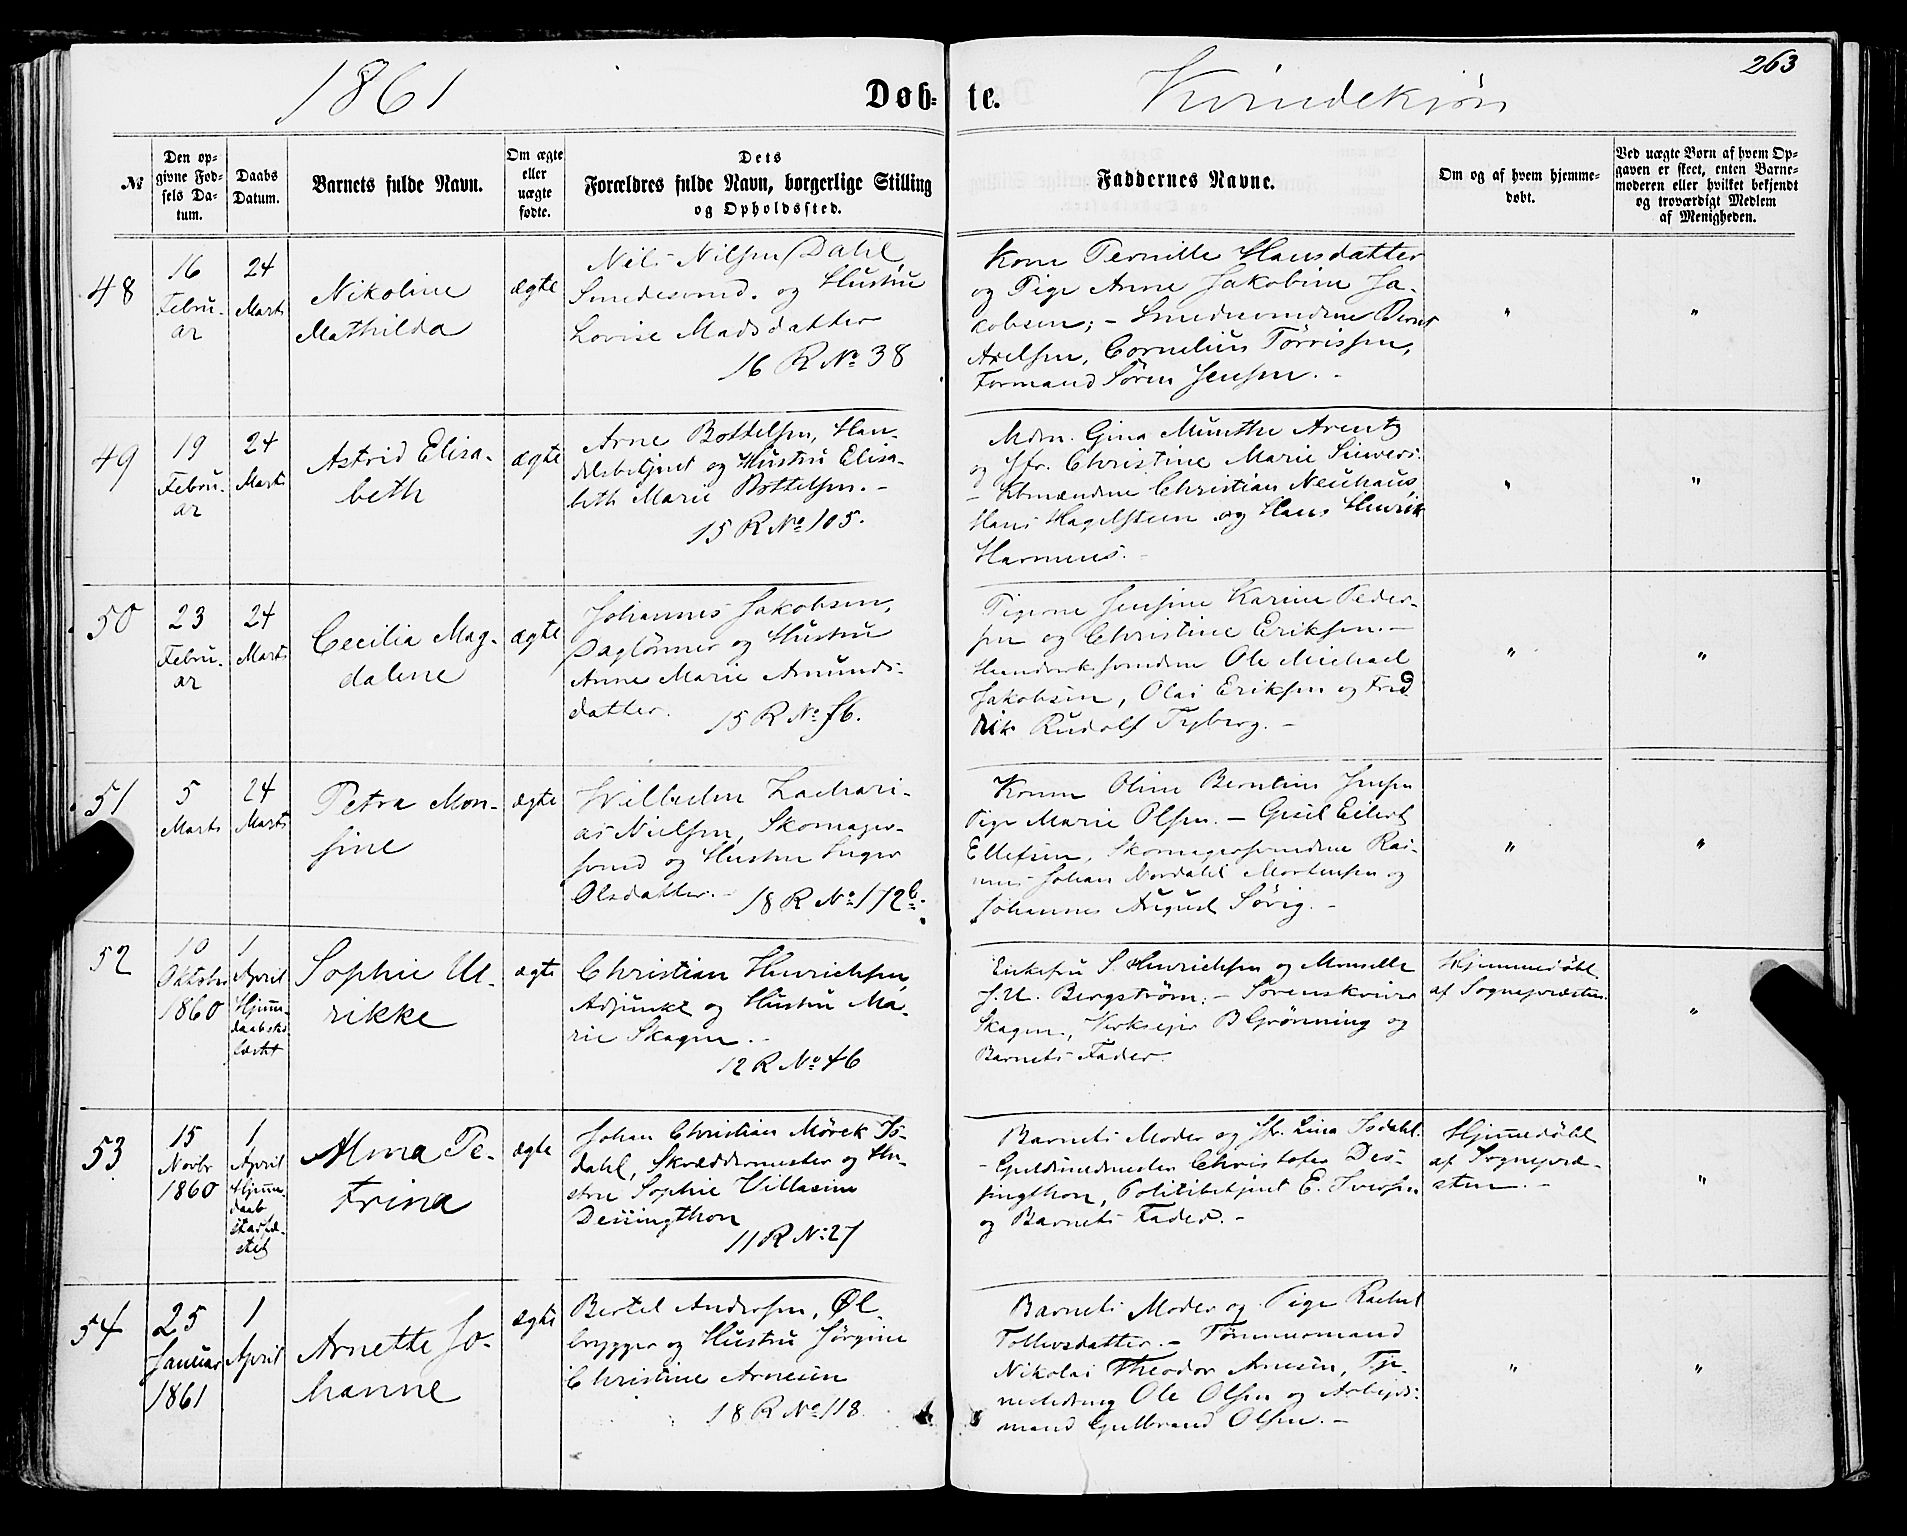 263
1861
Døb-
te.
Kvindekjøn
№
Den op-
givne Fød-
sels Da-
tum.
Daabs
Datum.
Barnets fulde Navn.
Om ægte
eller
uægte
fødte.
Dets
Forældres fulde Navn, borgerlige Stilling
og Opholdssted.
Faddernes Navne.
Om og af hvem hjemme-
døbt.
Ved uægte Børn af hvem Op-
gaven er skeet, enten Barne-
moderen eller hvilket bekjendt
og troværdigt Medlem
af Menigheden.
48
16
Febru-
ar
24
Marts
Nikoline
Mathilda
ægte
Nils Nilsen Dahl,
Smedesvend. og Hustru
Lovise Madsdatter
16 R No 38
Kone Pernille Hansdatter
og Pige Anne Jakobine Ja-
cobsen; - Smedsvendene Bernt
Axelsen, Cornelius Tørrissen,
Formand Søren Jensen. -
"
"
49
19
Febru-
ar
24
Marts
Astrid Elisa-
beth
ægte
Arne Bottelsen, Han-
delsbetjent og Hustru Elisa-
beth Marie Bottelsen. -
15 R No 105.
Mdm. Gina Munthe Arentz
og Jfr. Christine Marie Siewers.
- Kbmændene Christian Neuhaus,
Hans Hagelsteen og Hans Henrik
Harmens. -
"
"
50
23
Febru-
ar
24
Marts
Cecilia Mag-
dalene
ægte
Johannes Jakobsen,
Daglønner og Hustru
Anne Marie Amunds-
datter. 15 R No 56.
Pigerne Jensine Karine Peder-
sen og Christine Eriksen. -
Haandverkssvendene Ole Michael
Jakobsen, Olai Eriksen og Fred
rik Rudolf Tyberg. -
"
"
51
5
Marts
24
Marts
Petra Mon-
sine
ægte
Wilhelm Zachari-
as Nielsen, Skomager-
svend og Hustru Inger
Olsdatter. - 18 R No 172 b.
Konen Oline Berntine Jensen
Pige Marie Olsen. - Guul Eilert
Ellefsen, Skomagersvendene Ras-
mus Johan Nordahl Mortensen og
Johannes August Sørig. -
"
"
52
10
Oktober
1860
1
April
Hjemme-
daab
Sophie Ul-
rikke
ægte
Christian Henrichsen,
Adjunkt og Hustru Ma-
rie Skagen. -
12 R No 46
Enkefru S. Henrichsen og Momselle
J. U. Bergström. - Sorenskriver
Skagen, Verkseier B Grønning og
Barnets Fader.
Hjemmedøbt
af Sognepræsten.
"
53
15
Novbr
1860
1
April
Hjemme-
daab
stadfæ-
stet
Alma Pe-
trina
ægte
Johan Christian Mørck Is-
dahl, Skræddermester og Hu-
stru Sophie Villasine
Dessingthon
11 R No 27
Barnets Moder og Jfr. Lina Isdahl.
- Guldsmedmester Christofer Des-
singthon, Politibetjent E. Iversen
og Barnets Fader. -
Hjemmedøbt
af Sognepræ-
sten. -
"
54
25
Januar
1861
1
April
Arnette Jo-
hanne
ægte
Bertel Andersen, Øl-
brygger og Hustru Jørgine
Christine Arnesen
18 R No 118.
Barnets Moder og Pige Rachel
Tollevsdatter. - Tømmermand
Nikolai Theodor Arnesen, Tje-
nestedreng Ole Olsen og Arbejds-
mand Gulbrand Olsen. -
"
"